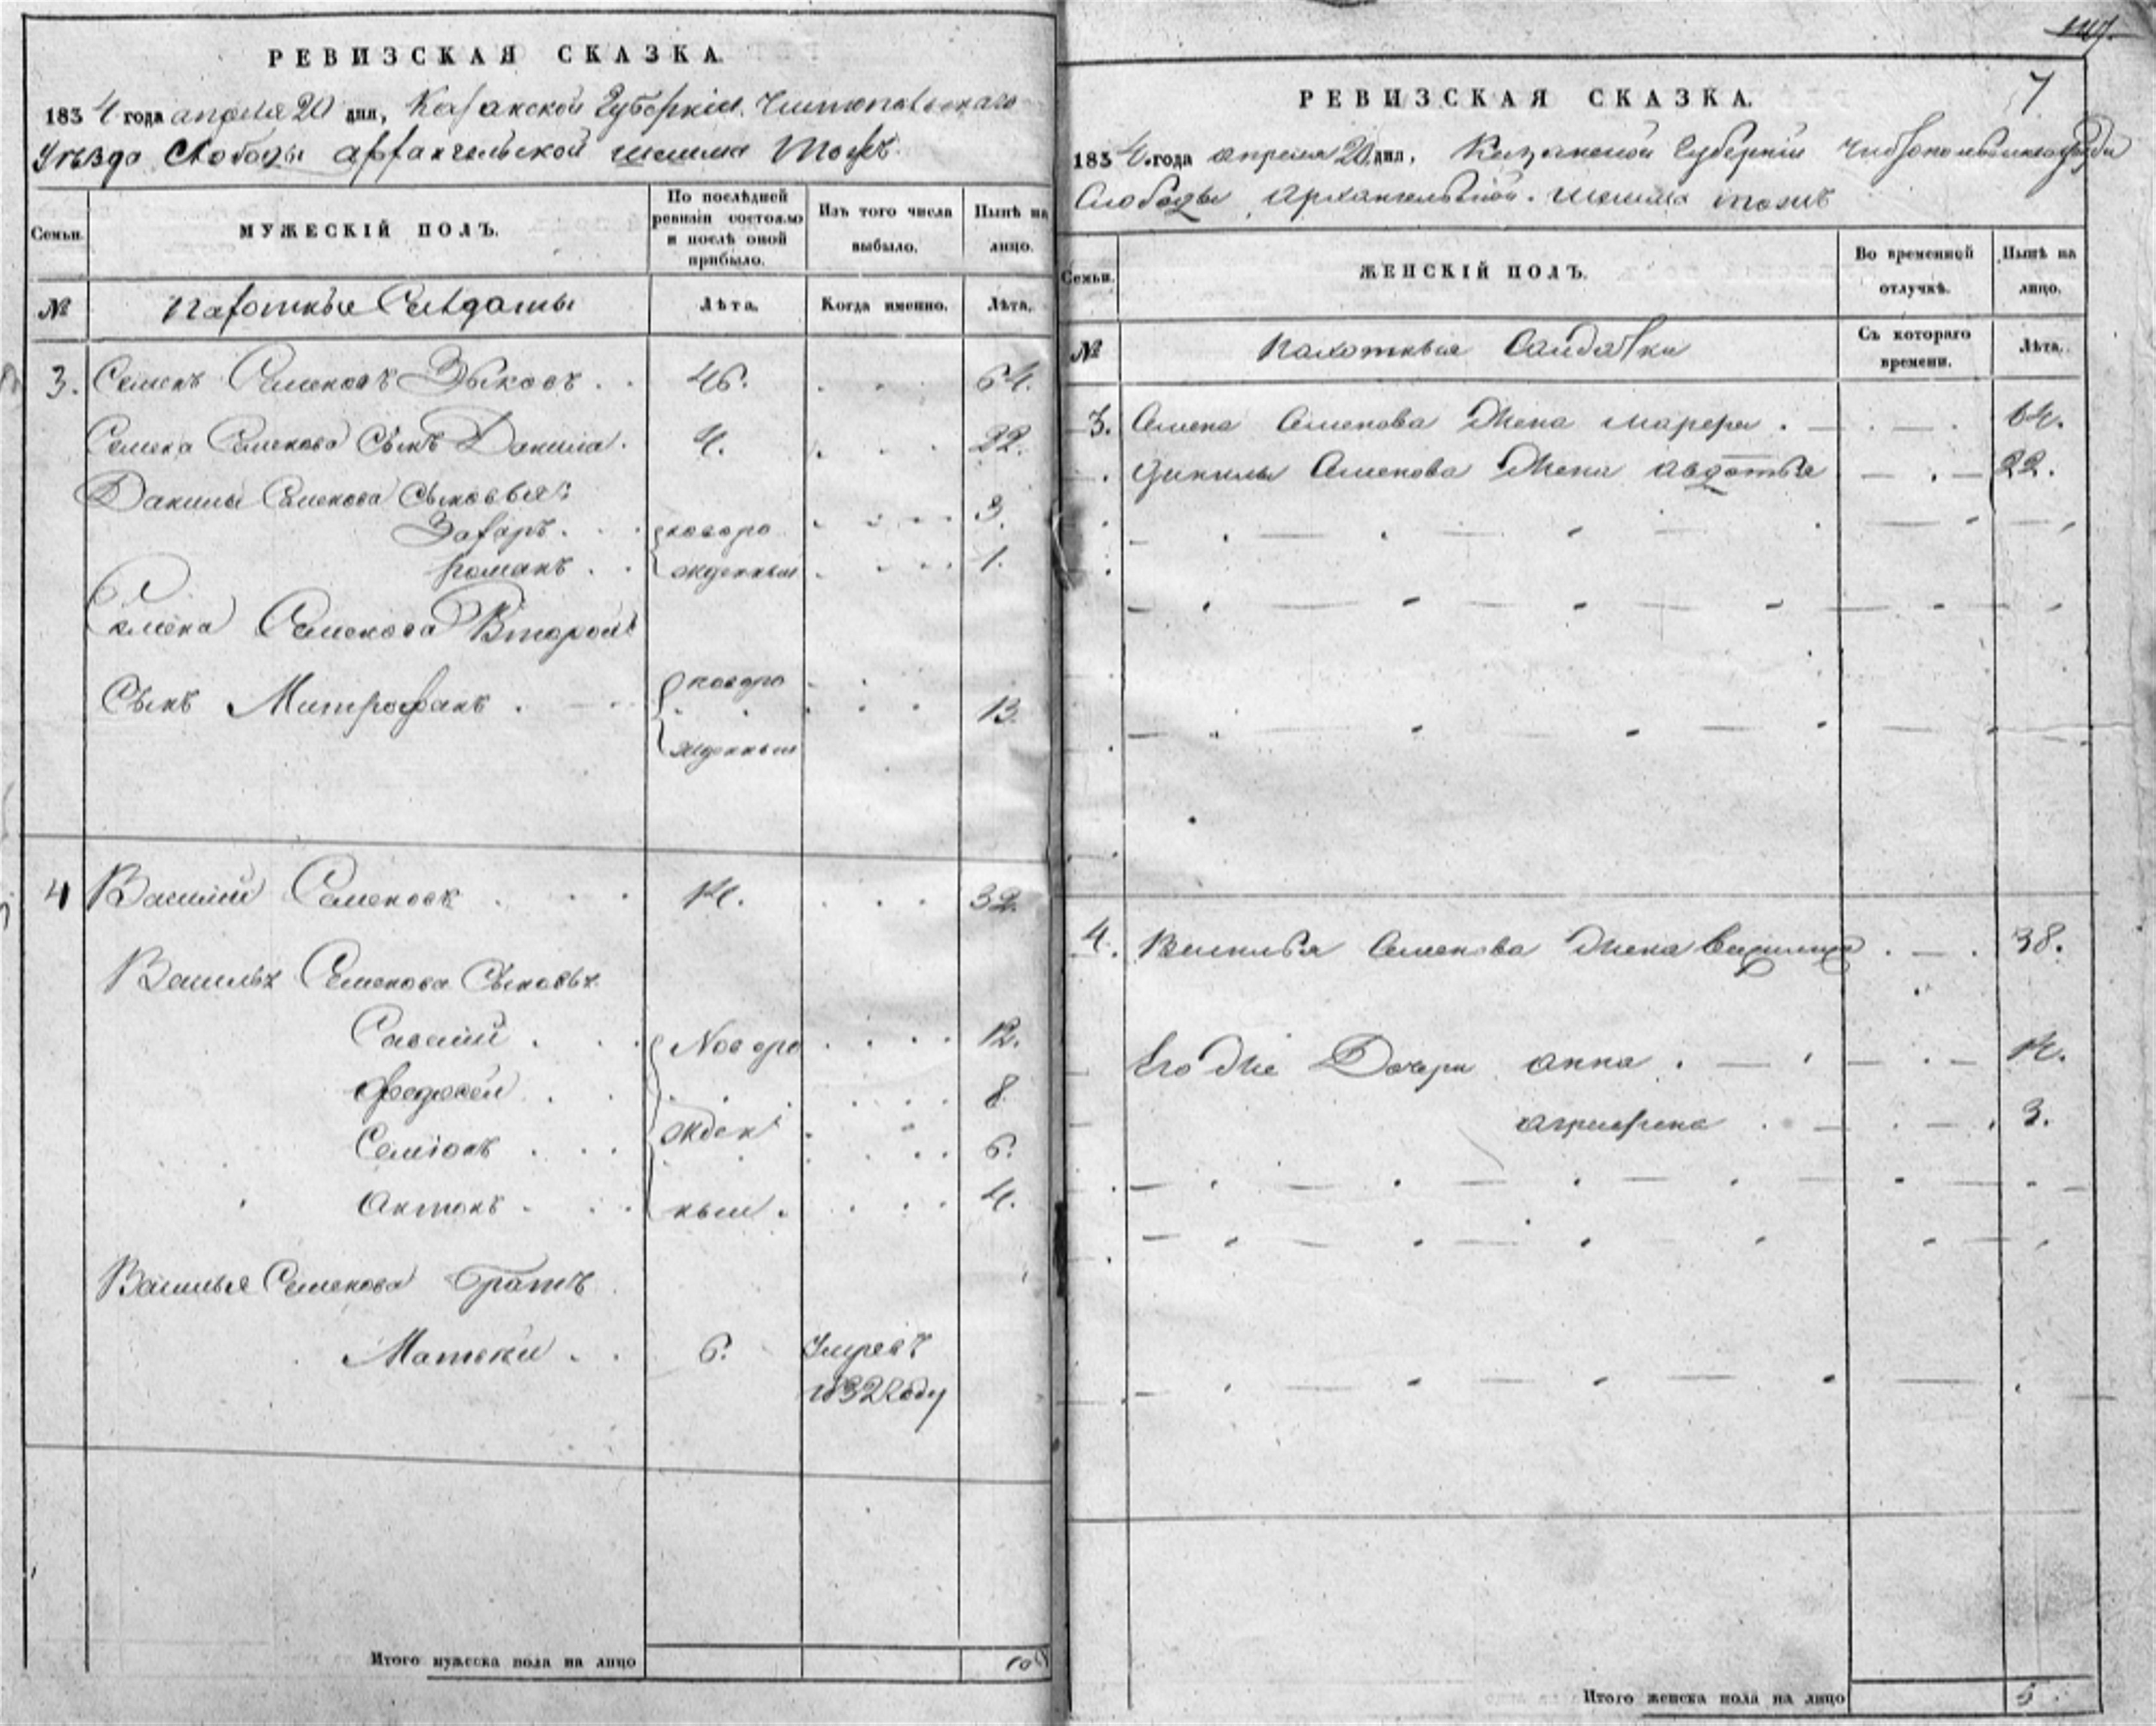 РЕВИЗСКАЯ СКАЗКА.
1834 года апреля 20 дня, Казанской Губернии. Чистопольскаго
Уѣзда Слободы архангельской шешма тожъ.
Семьи.
МУЖЕСКІЙ ПОЛЪ.
По послѣдней ревизіи состояло и послѣ оной прибыло.
Изъ того числа выбыло.
Нынѣ на лицо.
№
пахотные Солдаты
Лѣта.
Когда именно.
Лѣта.
3. Семенъ Семеновъ Зыковъ . . 46. . . 64.
Семена Семенова Сынъ Данила . 4. . . . 22.
Данилы Семенова Сыновья:
Захаръ . . . новоро . . . . 3.
романъ . . жденныи . . . . 1.
Семена Семенова Второй
Сынъ Митрофанъ . новоро жденныи 13.
4 Василий Семеновъ . . . 14. . . . 32.
Василья Семенова Сыновья
Савелий . . . Новоро . . . . 12.
Федосей . . . . . . 8
Семіонъ . . . жден . . . . 6.
Антонъ . . . ныи . . . . 4.
Василья Семенова братъ
Матвеи . . 6. Умре въ
1832 году
Итого мужеска пола на лицо 10
7
РЕВИЗСКАЯ СКАЗКА.
1834 года апреля 20 дня, Казанской Губерніи
Слободы Архангельской. шешма тожъ
Семьи.
ЖЕНСКІЙ ПОЛЪ.
Во временной отлучкѣ.
Нынѣ на лицо.
№
пахотныя Салдатки
Съ котораго времени.
Лѣта.
3. Семена Семенова Жена марфа . — . — . 64.
Данилы Семенова Жена авдотья — . — 22.
4. Василья Семенова Жена . — . 38.
Его же Дочери анна . — . — . — 14.
3.
Итого женска пола на лицо 5